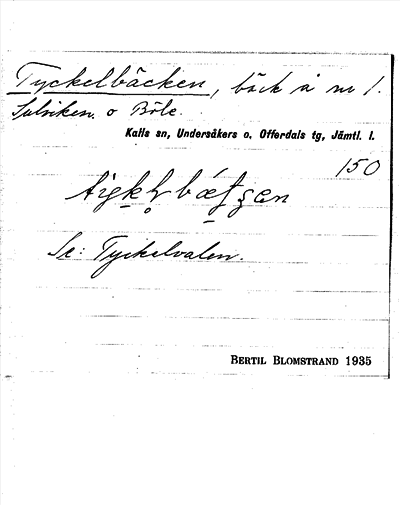 Tyckelbäcken, bäck å nr 1.
Sulviken o Böle.
Kalls sn, Undersåkers o. Offerdals tg, Jämtl. l.
150
Se: Tyckelvalen.
BERTIL BLOMSTRAND 1935